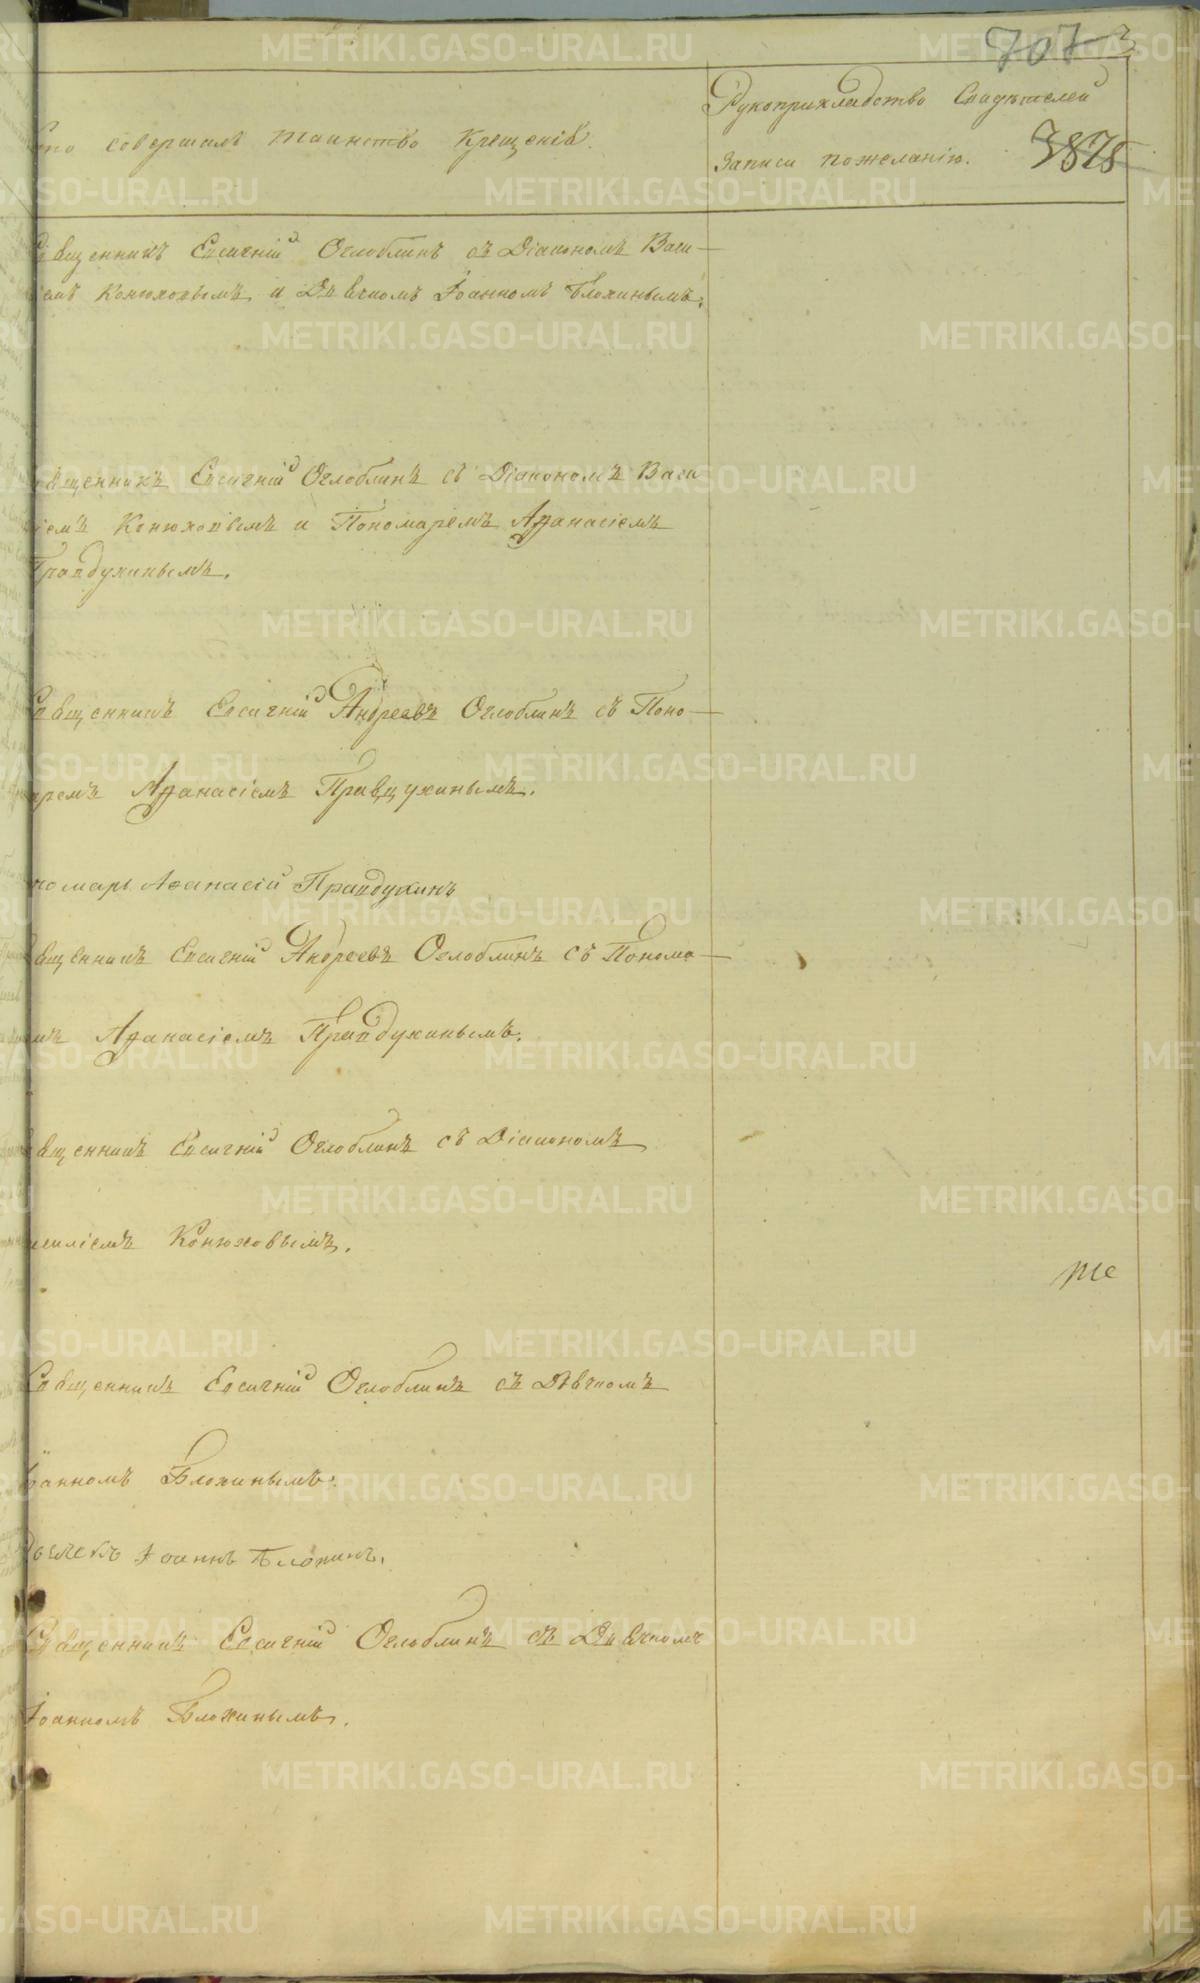 707
Рукоприкладство Свидѣтелей
Кто совершалъ таинство Крещенія.
Записи по желанію. 3878
Священникъ Евсигній Оглоблинъ съ Діакономъ Васи-
ліемъ Конюховымъ и Дьячкомъ Іоанномъ Блохинымъ.
Священникъ Евсигній Оглоблинъ съ Діакономъ Васи
ліемъ Конюховымъ и Пономаремъ Афанасіемъ
Правдухинымъ.
Священникъ Евсигній Андреевъ Оглоблинъ съ Поно-
маремъ Афанасіемъ Правдухинымъ.
номарь Афанасій Правдухинъ
Священникъ Евсигній Андреевъ Оглоблинъ съ Понома-
мъ Афанасіемъ Правдухинымъ.
Священникъ Евсигній Оглоблинъ съ Діакономъ
силіемъ Конюховымъ.
Священникъ Евсигній Оглоблинъ съ Дьячкомъ
Іоанномъ Блохинымъ.
Дьячекъ Іоаннъ Блохинъ.
Священникъ Евсигній Оглоблинъ съ Дьячкомъ
Іоанномъ Блохинымъ.
METRIKI.GASO-URAL.RU